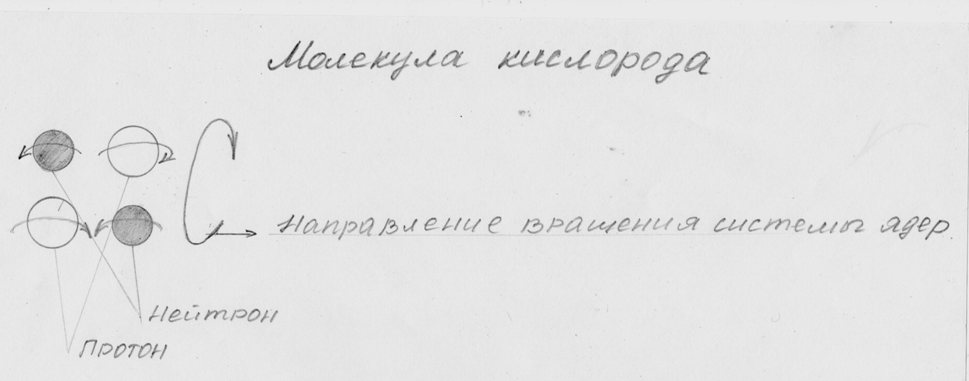 Молекула кислорода
Направление вращения системы ядер.
Нейтрон
Протон